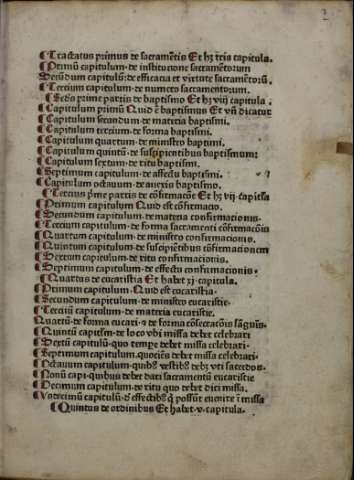 Tractatus primus de sacramētis Et hȝ tria capitula.
Primū capitulum de institucione sacramētorum
Secūdum capitulū: de efficacia et virtute sacramētorū.
Tercium capitulum de numero sacramentorum.
Scd̄a prime partis de baptismo Et hȝ viij capitula.
Capitulum primū Quid ē baptismus Et vn̄ dicatur
Capitulum secundum de materia baptismi.
Capitulum tercium de forma baptismi.
Capitulum quartum de ministro baptimi.
Capitulum quintū de suscipientibus baptismum:
Capitulum sextum de ritu baptismi.
Septimum capitulum de affectu baptismi.
Capitulum octauum de anexis baptismo.
Tercius p̄me partis de cōfirmacōe Et hȝ vij capitula
Primum capitulum Quid est cōfirmacio.
Secundum capitulum de materia confirmacionis.
Tercium capitulum de forma sacramenti cōfirmacōis
Quartum capitulum de ministro confirmacionis.
Quintum capitulum de suscipientibus cōfirmationem
Sextum capitulum de ritu confirmacionis.
Septimum capitulum de effectu confirmacionis.
Quartus de eucaristia Et habet xj capitula.
Primum capitulum Quid est eucaristia.
Secundum capitulum de ministro eucaristie.
Terciū capitulum de materia eucaristie.
Quartū de forma eucari. ⁊ de forma cōsecratōis sāguīs.
Quintū capitlm de loco vbi missa debet celebrari
Sextū capitulū quo tempe debet missa celebrari.
Septimum capitulum quociēs debet missa celebrari.
Octauum capitulum quibꝰ vestibꝰ debȝ vti sacerdos.
Nonū capi. quibus debet dari sacramentū eucaristie
Decimum capitulum de ritu quo debet dici missa.
Vndecimū capitulū d̄ effectibꝰ q̄ possūt euenire ī missa
Quintus de ordinibus Et habet v. capitula.